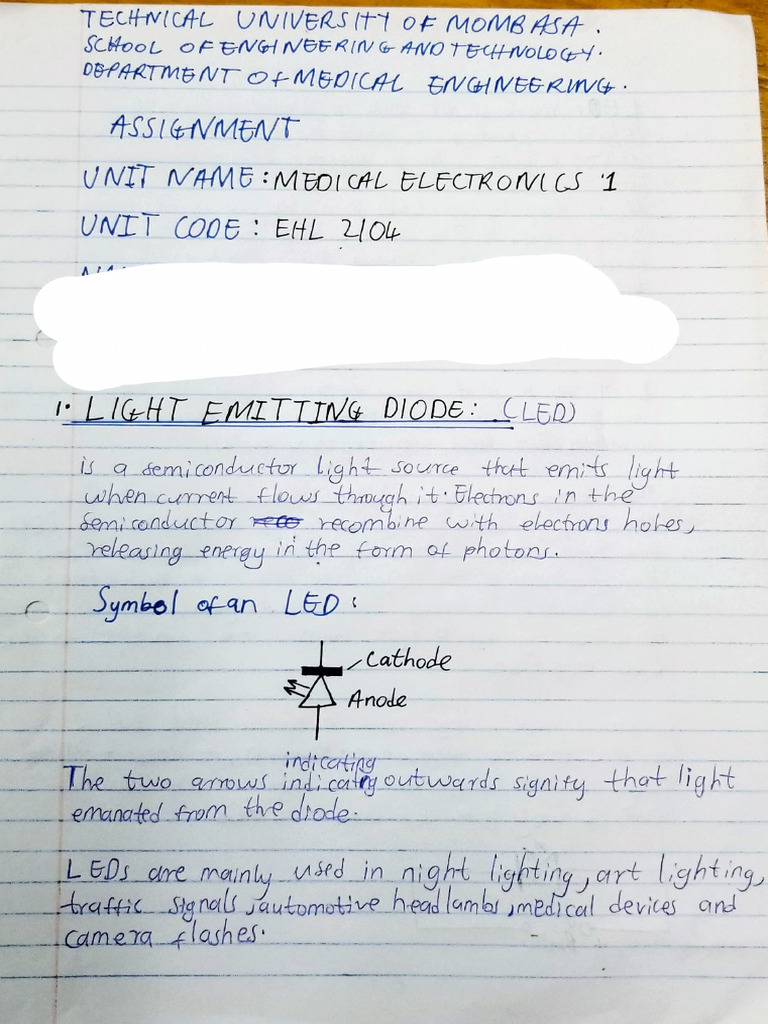 TECHNICAL UNIVERSITY OF MOMBASA.
SCHOOL OF ENGINEERING AND TECHNOLOGY.
DEPARTMENT OF MEDICAL ENGINEERING.
ASSIGNMENT
UNIT NAME: MEDICAL ELECTRONICS 1
UNIT CODE: EHL 2104
1. LIGHT EMITTING DIODE: (LED)
is a semiconductor light source that emits light
when current flows through it. Electrons in the
semiconductor recombine with electrons holes,
releasing energy in the form of photons.
Symbol of an LED:
Cathode
Anode
indicating
The two arrows indicating outwards signify that light
emanated from the diode.
LEDs are mainly used in night lighting, art lighting,
traffic signals, automotive headlambs, medical devices and
camera flashes.